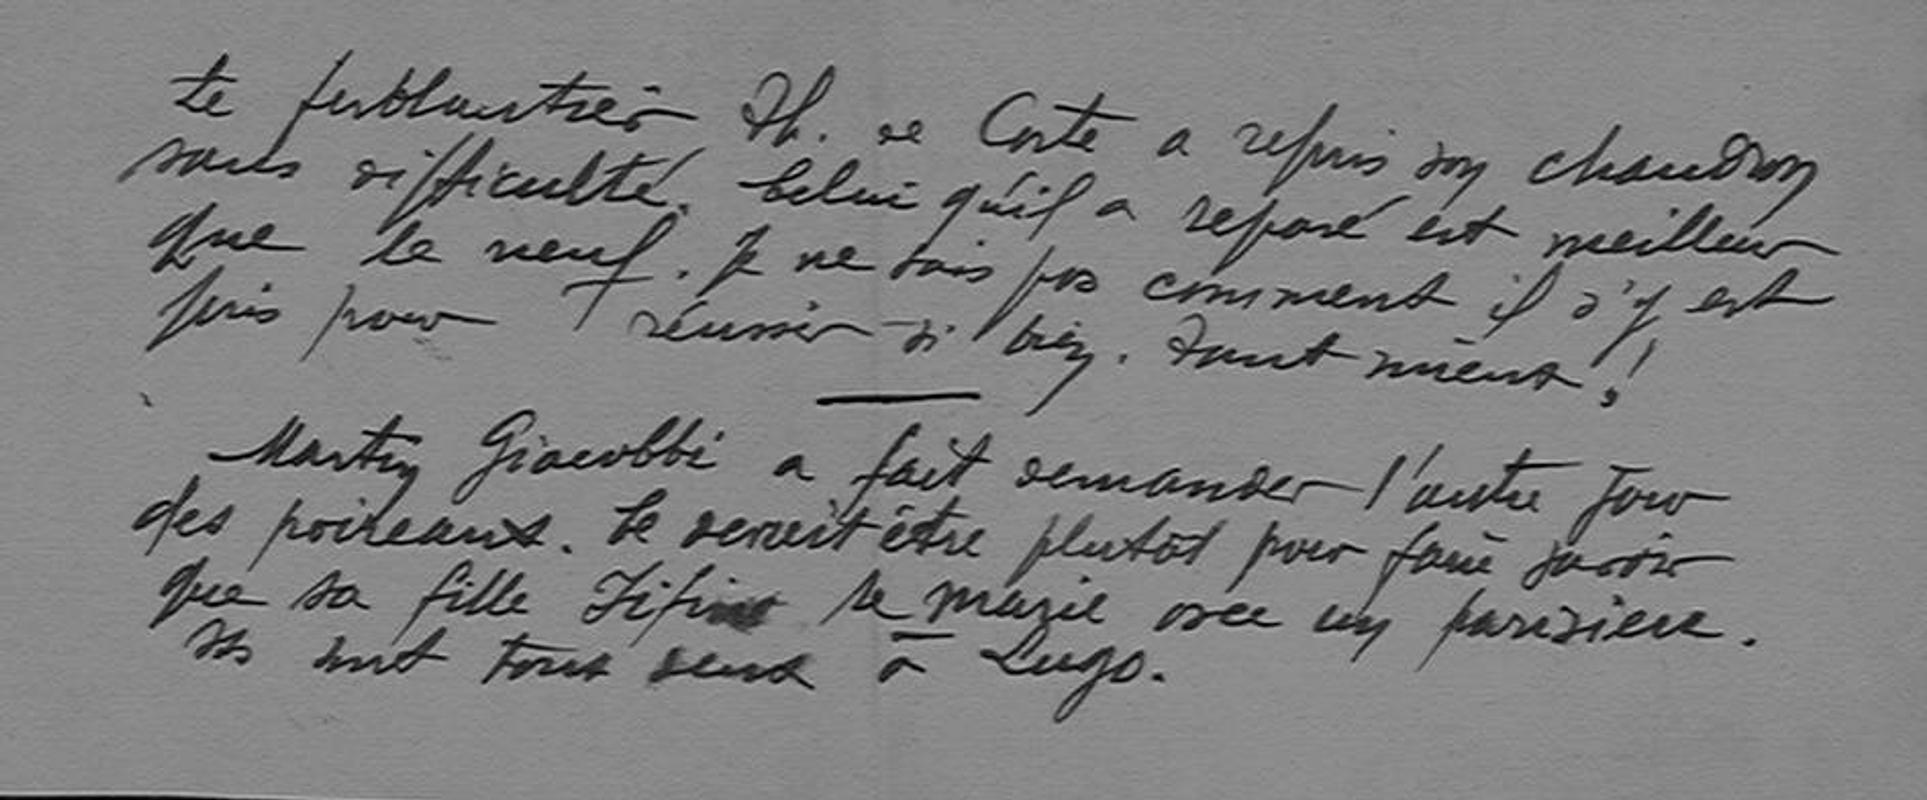 Le ferblantier Th. de Corte a repris son chaudron
sans difficulté. Celui qu'il a réparé est meilleur
que le neuf. Je ne sais pas comment il s'y est
pris pour réussir si bien. Tant mieux !
Martin Giacobbi a fait demander l'autre jour
des poireaux. Ce devait être plutôt pour faire savoir
que sa fille Fifine se marie avec un parisien.
Ils sont tous deux à Lugo.